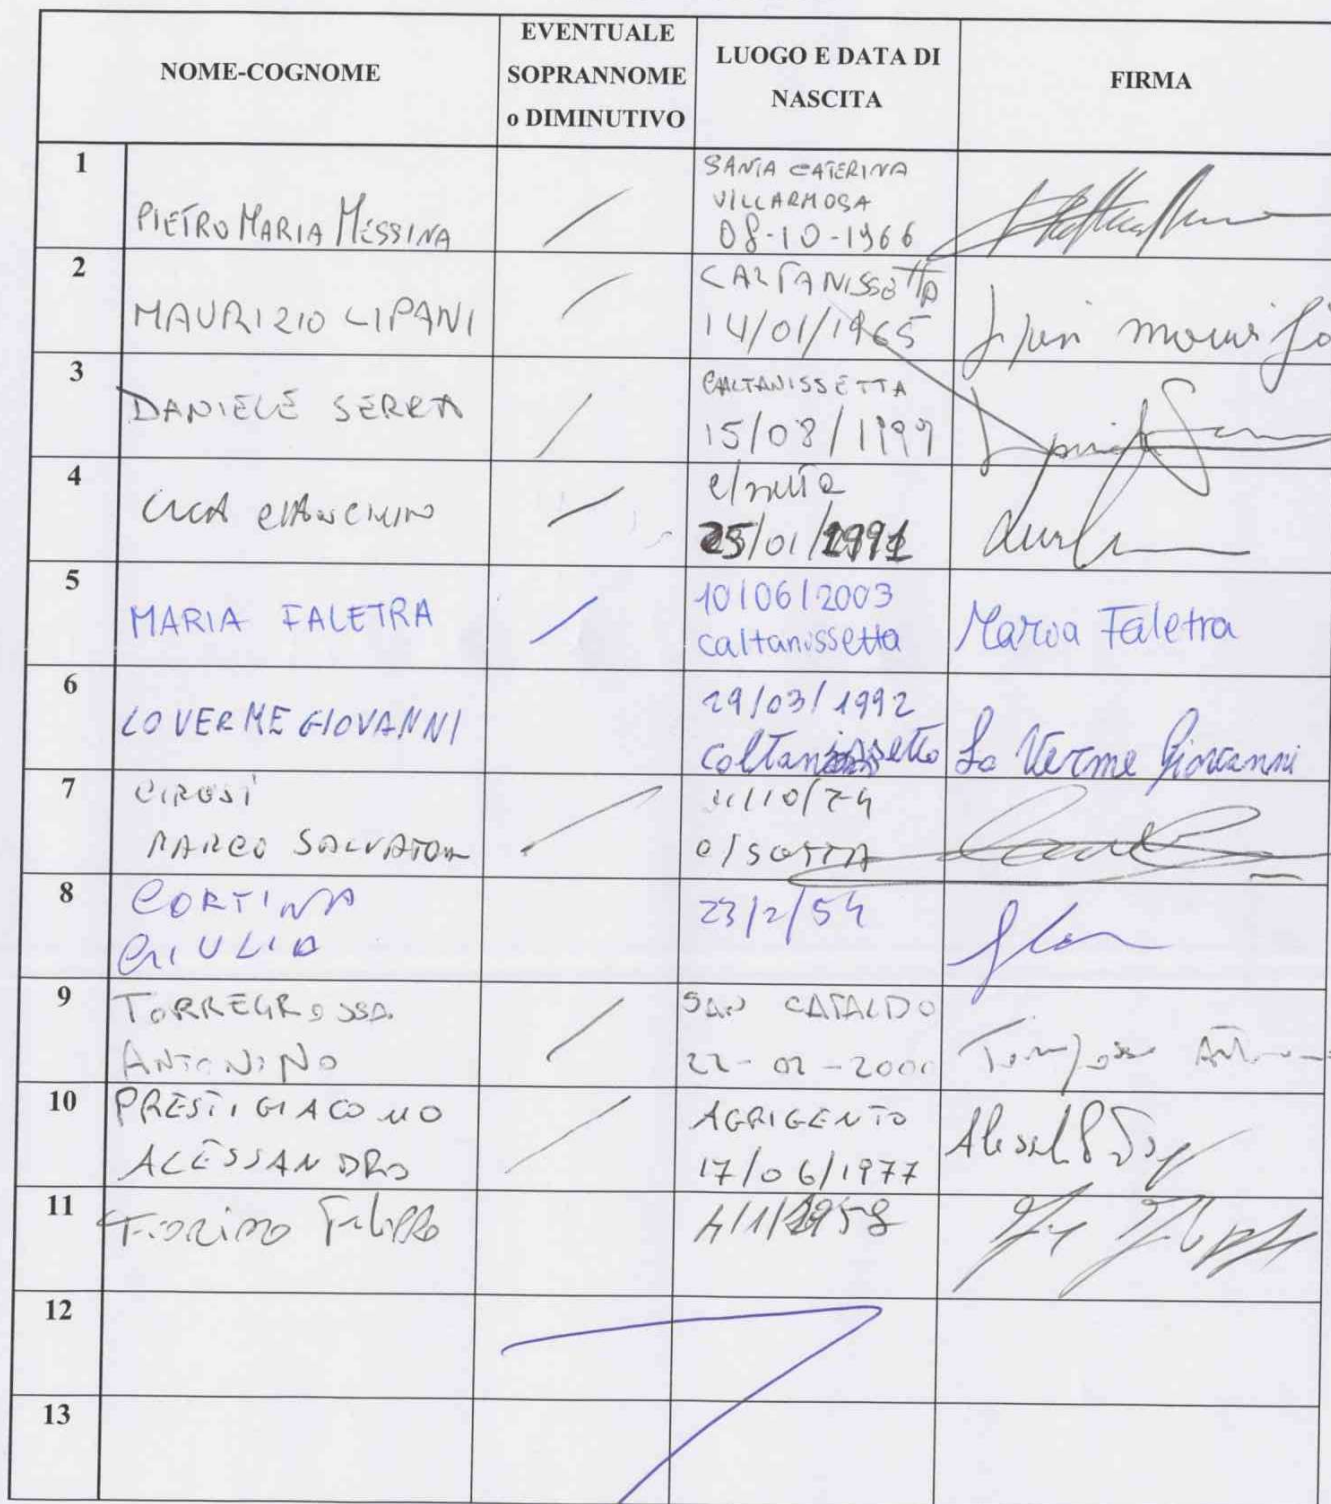 NOME-COGNOME
EVENTUALE
SOPRANNOME
o DIMINUTIVO
LUOGO E DATA DI
NASCITA
FIRMA
1
PIETRO MARIA MESSINA
SANTA CATERINA
VILLARMOSA
08-10-1966
2
MAURIZIO LIPANI
CALTANISSETTA
14/01/1965
Lipani Maurizio
3
DANIELE SERRA
CALTANISSETTA
15/08/1997
4
LUCA
25/01/1991
5
MARIA FALETRA
10/06/2003
caltanissetta
Maria Faletra
6
LO VERME GIOVANNI
29/03/1992
Caltanissetta
Lo Verme Giovanni
7
CIRUSÌ
MARCO SALVATORE
11/10/74
8
CORTINA
GIULIA
23/2/54
9
TORREGROSSA
ANTONINO
SAN CATALDO
22-02-2000
10
PRESTIGIACOMO
ALESSANDRO
AGRIGENTO
17/06/1977
11
Fiorino Filippo
4/1/1958
12
13